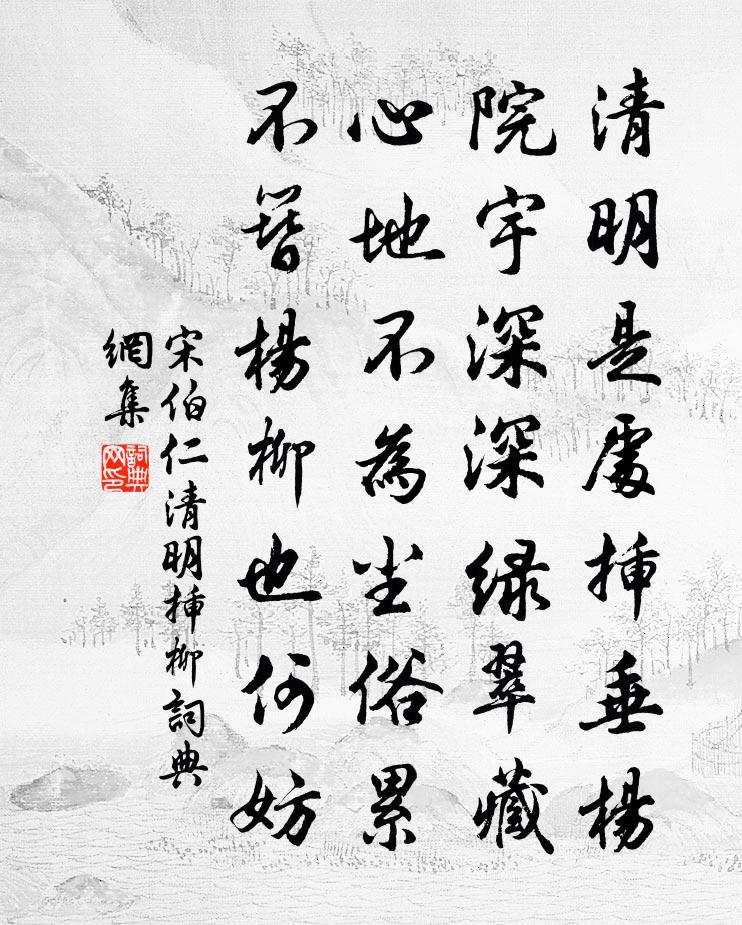 清明是處揷垂楊
院宇深深綠翠藏
心地不為尘俗累
不簪楊柳也何妨
宋伯仁清明揷柳詞典
網集
詞典
网印